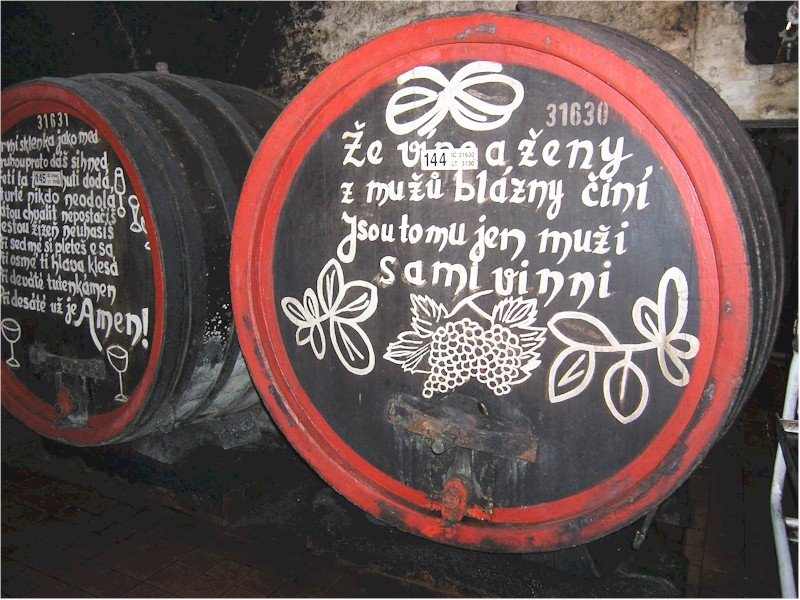 31631
rvní sklenka jako med
ruhou proto dáš si hned
řetí ta chuti dodá,
tvrté nikdo neodolá
átou chválit nepostačí
estou žízeň neuhasíš
ři sedmé si pleteš esa
ři osmé ti hlava klesá
ři deváté tvůj enkamen
ři desáté už je Amen!
31630
Že víno a ženy
z mužů blázny činí
Jsou tomu jen muži
sami vinni
144
IČ 31630
LT 3130